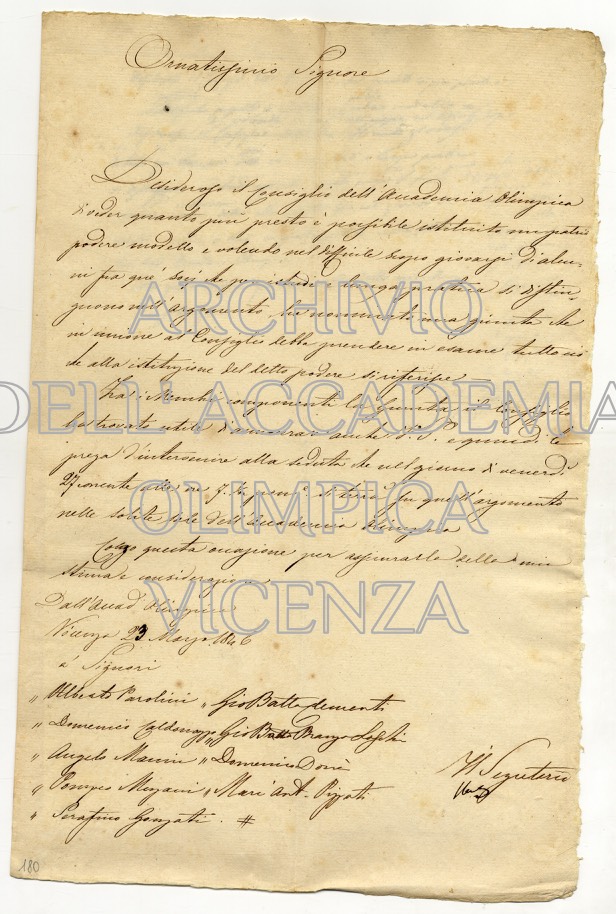 Ornatissimo Signore
Desideroso il Consiglio dell'Accademia Olimpica
di veder quanto più presto è possibile istituito un patrio
podere modello e volendo nel difficile scopo giovarsi di alcu-
ni fra que' Socj che per istudi e lunga pratica si distin-
guono nell'argomento ha nominata una giunta che
in unione al Consiglio debba prendere in esame tutto ciò
che alla istituzione del detto podere si riferisce
Tra i Membri componenti la Giunta il Consiglio
ha trovato utile d'annoverar anche S.S. e quindi La
prega d'intervenire alla seduta che nel giorno di venerdì
27 corrente alle ore si terrà per quell'argomento
nelle solite sale dell'Accademia Olimpica
Colgo questa occasione per assicurarla della mia
stima e considerazione
Dall'Accad.a Olimpica
Vicenza 23 Marzo 1846
a' Signori
" Alberto Parolini " Gio Batta Clementi
" Domenico Caldonazzo " Gio Batta Franzo
" Angelo " Domenico
" Pompeo " Marc' Ant.
" Serafino Gonzati. #
Il Segretario
180
ARCHIVIO
DELL'ACCADEMIA
OLIMPICA
VICENZA